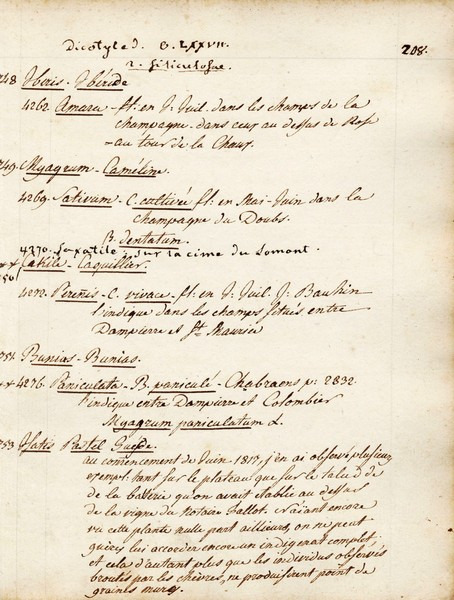 Dicotyled. C. LXXVII.
208.
2. Siliculosae.
748 Iberis. Ibéride
4262. Amara - fl. en J: Juil. dans les champs de la
champagne - dans ceux au dessus de
- au tour de la Chaux.
749. Myagrum - Caméline.
4269. Sativum - C. cultivée fl: en Mai-Juin dans la
champagne du Doubs.
β. dentatum.
4270. Saxatile. sur la cime du Lomont.
** Cakile - Caquillier.
750
4272. Perennis - C. vivace - fl: en J: Juil. J: Bauhin
l'indique dans les champs situés entre
Dampierre et St. Maurice
751. Bunias - Bunias.
** 4276. Paniculata - B. paniculé - Chabraeus p: 2832.
l'indique entre Dampierre et Colombier
Myagrum paniculatum L.
753 Isatis Pastel Guesde.
au commencement de Juin 1817, j'en ai observé plusieurs
exempl: tant sur le plateau que sur le talud de
de la batterie qu'on avait établie au dessus
de la vigne du Notaire Fallot. n'aiant encore
vu cette plante nulle part ailleurs, on ne peut
guères lui accorder encore un indigenat complet,
et cela d'autant plus que les individus observés
broutés par les chèvres, ne produisirent point de
graines mures.